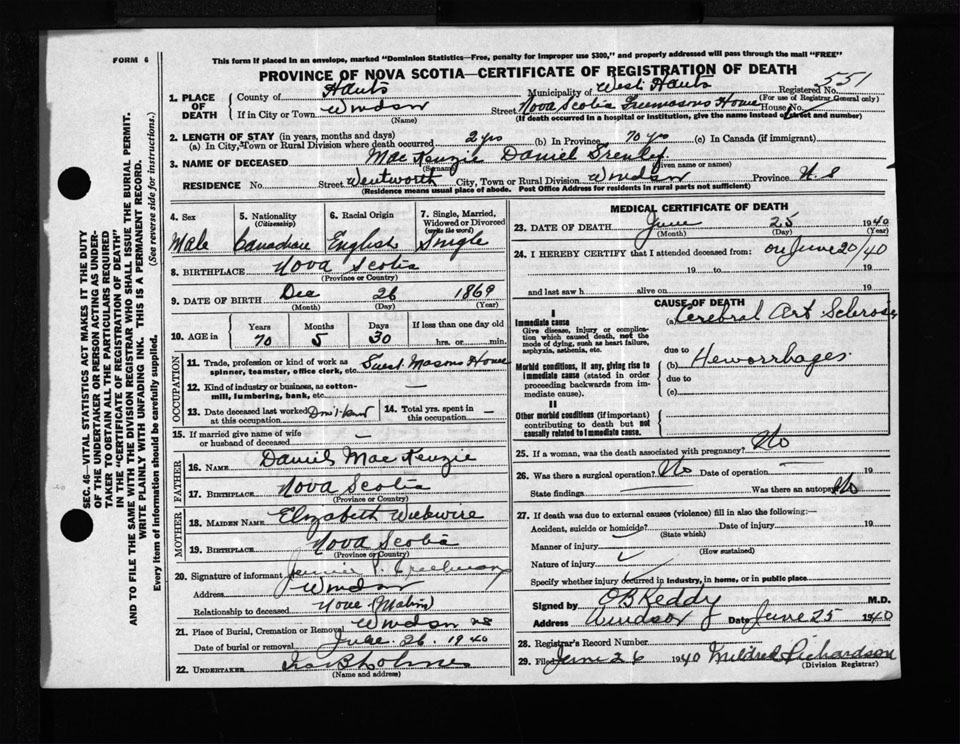 FORM 6
This form if placed in an envelope, marked "Dominion Statistics—Free, penalty for improper use $300," and properly addressed will pass through the mail "FREE"
PROVINCE OF NOVA SCOTIA—CERTIFICATE OF REGISTRATION OF DEATH
SEC. 46—VITAL STATISTICS ACT MAKES IT THE DUTY
OF THE UNDERTAKER OR PERSON ACTING AS UNDER-
TAKER TO OBTAIN ALL THE PARTICULARS REQUIRED
IN THE "CERTIFICATE OF REGISTRATION OF DEATH"
AND TO FILE THE SAME WITH THE DIVISION REGISTRAR WHO SHALL ISSUE THE BURIAL PERMIT.
WRITE PLAINLY WITH UNFADING INK. THIS IS A PERMANENT RECORD.
Every item of Information should be carefully supplied. (See reverse side for instructions.)
1. PLACE OF DEATH
County of Hants Municipality of West Hants Registered No. 551
(For use of Registrar General only)
If in City or Town Windsor Street Nova Scotia Freemasons Home House No.
(Name) (If death occurred in a hospital or institution, give the name instead of street and number)
2. LENGTH OF STAY (in years, months and days)
(a) In City, Town or Rural Division where death occurred 2 yrs (b) In Province 70 yrs (c) In Canada (if immigrant)
3. NAME OF DECEASED MacKenzie Daniel
(Surname) (Given name or names)
RESIDENCE No. Street Wentworth City, Town or Rural Division Windsor Province N.S
(Residence means usual place of abode. Post Office Address for residents in rural parts not sufficient)
4. Sex
Male
5. Nationality
(Citizenship)
Canadian
6. Racial Origin
English
7. Single, Married, Widowed or Divorced
(write the word)
Single
8. BIRTHPLACE Nova Scotia
(Province or Country)
9. DATE OF BIRTH Dec 26 1869
(Month) (Day) (Year)
10. AGE in Years Months Days If less than one day old
70 5 30 hrs. or min.
OCCUPATION
11. Trade, profession or kind of work as
spinner, teamster, office clerk, etc. Guest Masons Home
12. Kind of industry or business, as cotton-
mill, lumbering, bank, etc. —
13. Date deceased last worked at this occupation Don't know
14. Total yrs. spent in this occupation —
15. If married give name of wife
or husband of deceased —
FATHER
16. NAME Daniel MacKenzie
17. BIRTHPLACE Nova Scotia
(Province or Country)
MOTHER
18. MAIDEN NAME Elizabeth Wickwire
19. BIRTHPLACE Nova Scotia
(Province or Country)
20. Signature of informant Jennie P. Creelman
Address Windsor
Relationship to deceased None (Matron)
21. Place of Burial, Cremation or Removal Windsor NS
Date of burial or removal June 26 1940
22. UNDERTAKER Ira B Holmes
(Name and address)
MEDICAL CERTIFICATE OF DEATH
23. DATE OF DEATH June 25 1940
(Month) (Day) (Year)
24. I HEREBY CERTIFY that I attended deceased from: on June 20/40
19 to 19
and last saw h alive on 19
CAUSE OF DEATH
I
Immediate cause
Give disease, injury or complica-
tion which caused death, not the
mode of dying, such as heart failure,
asphyxia, asthenia, etc.
(a) Cerebral Art Sclerosis
due to
Morbid conditions, if any, giving rise to
immediate cause (stated in order
proceeding backwards from im-
mediate cause).
(b) Hemorrhages
due to
(c)
II
Other morbid conditions (if important)
contributing to death but not
causally related to immediate cause.
25. If a woman, was the death associated with pregnancy? No
26. Was there a surgical operation? No Date of operation — 19
State findings — Was there an autopsy? No
27. If death was due to external causes (violence) fill in also the following:—
Accident, suicide or homicide? Date of injury 19
(State which)
Manner of injury
(How sustained)
Nature of injury
Specify whether injury occurred in industry, in home, or in public place
Signed by O B Keddy M.D.
Address Windsor Date June 25 1940
28. Registrar's Record Number
29. Filed June 26 1940 Mildred Richardson
(Division Registrar)